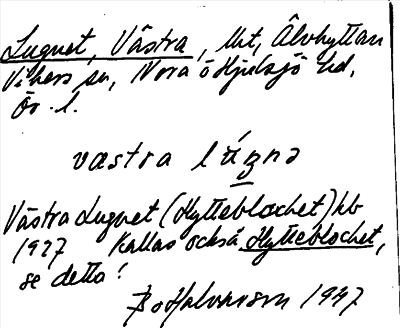 Lugnet, Västra, lht, Älvhyttan
Vikers sn, Nora o Hjulsjö hd,
Ör. l.
västra lúgnə
Västra Lugnet (Hytteblocket) hb
1927 Kallas också Hytteblocket,
se detta!
Bo Halvarson 1947